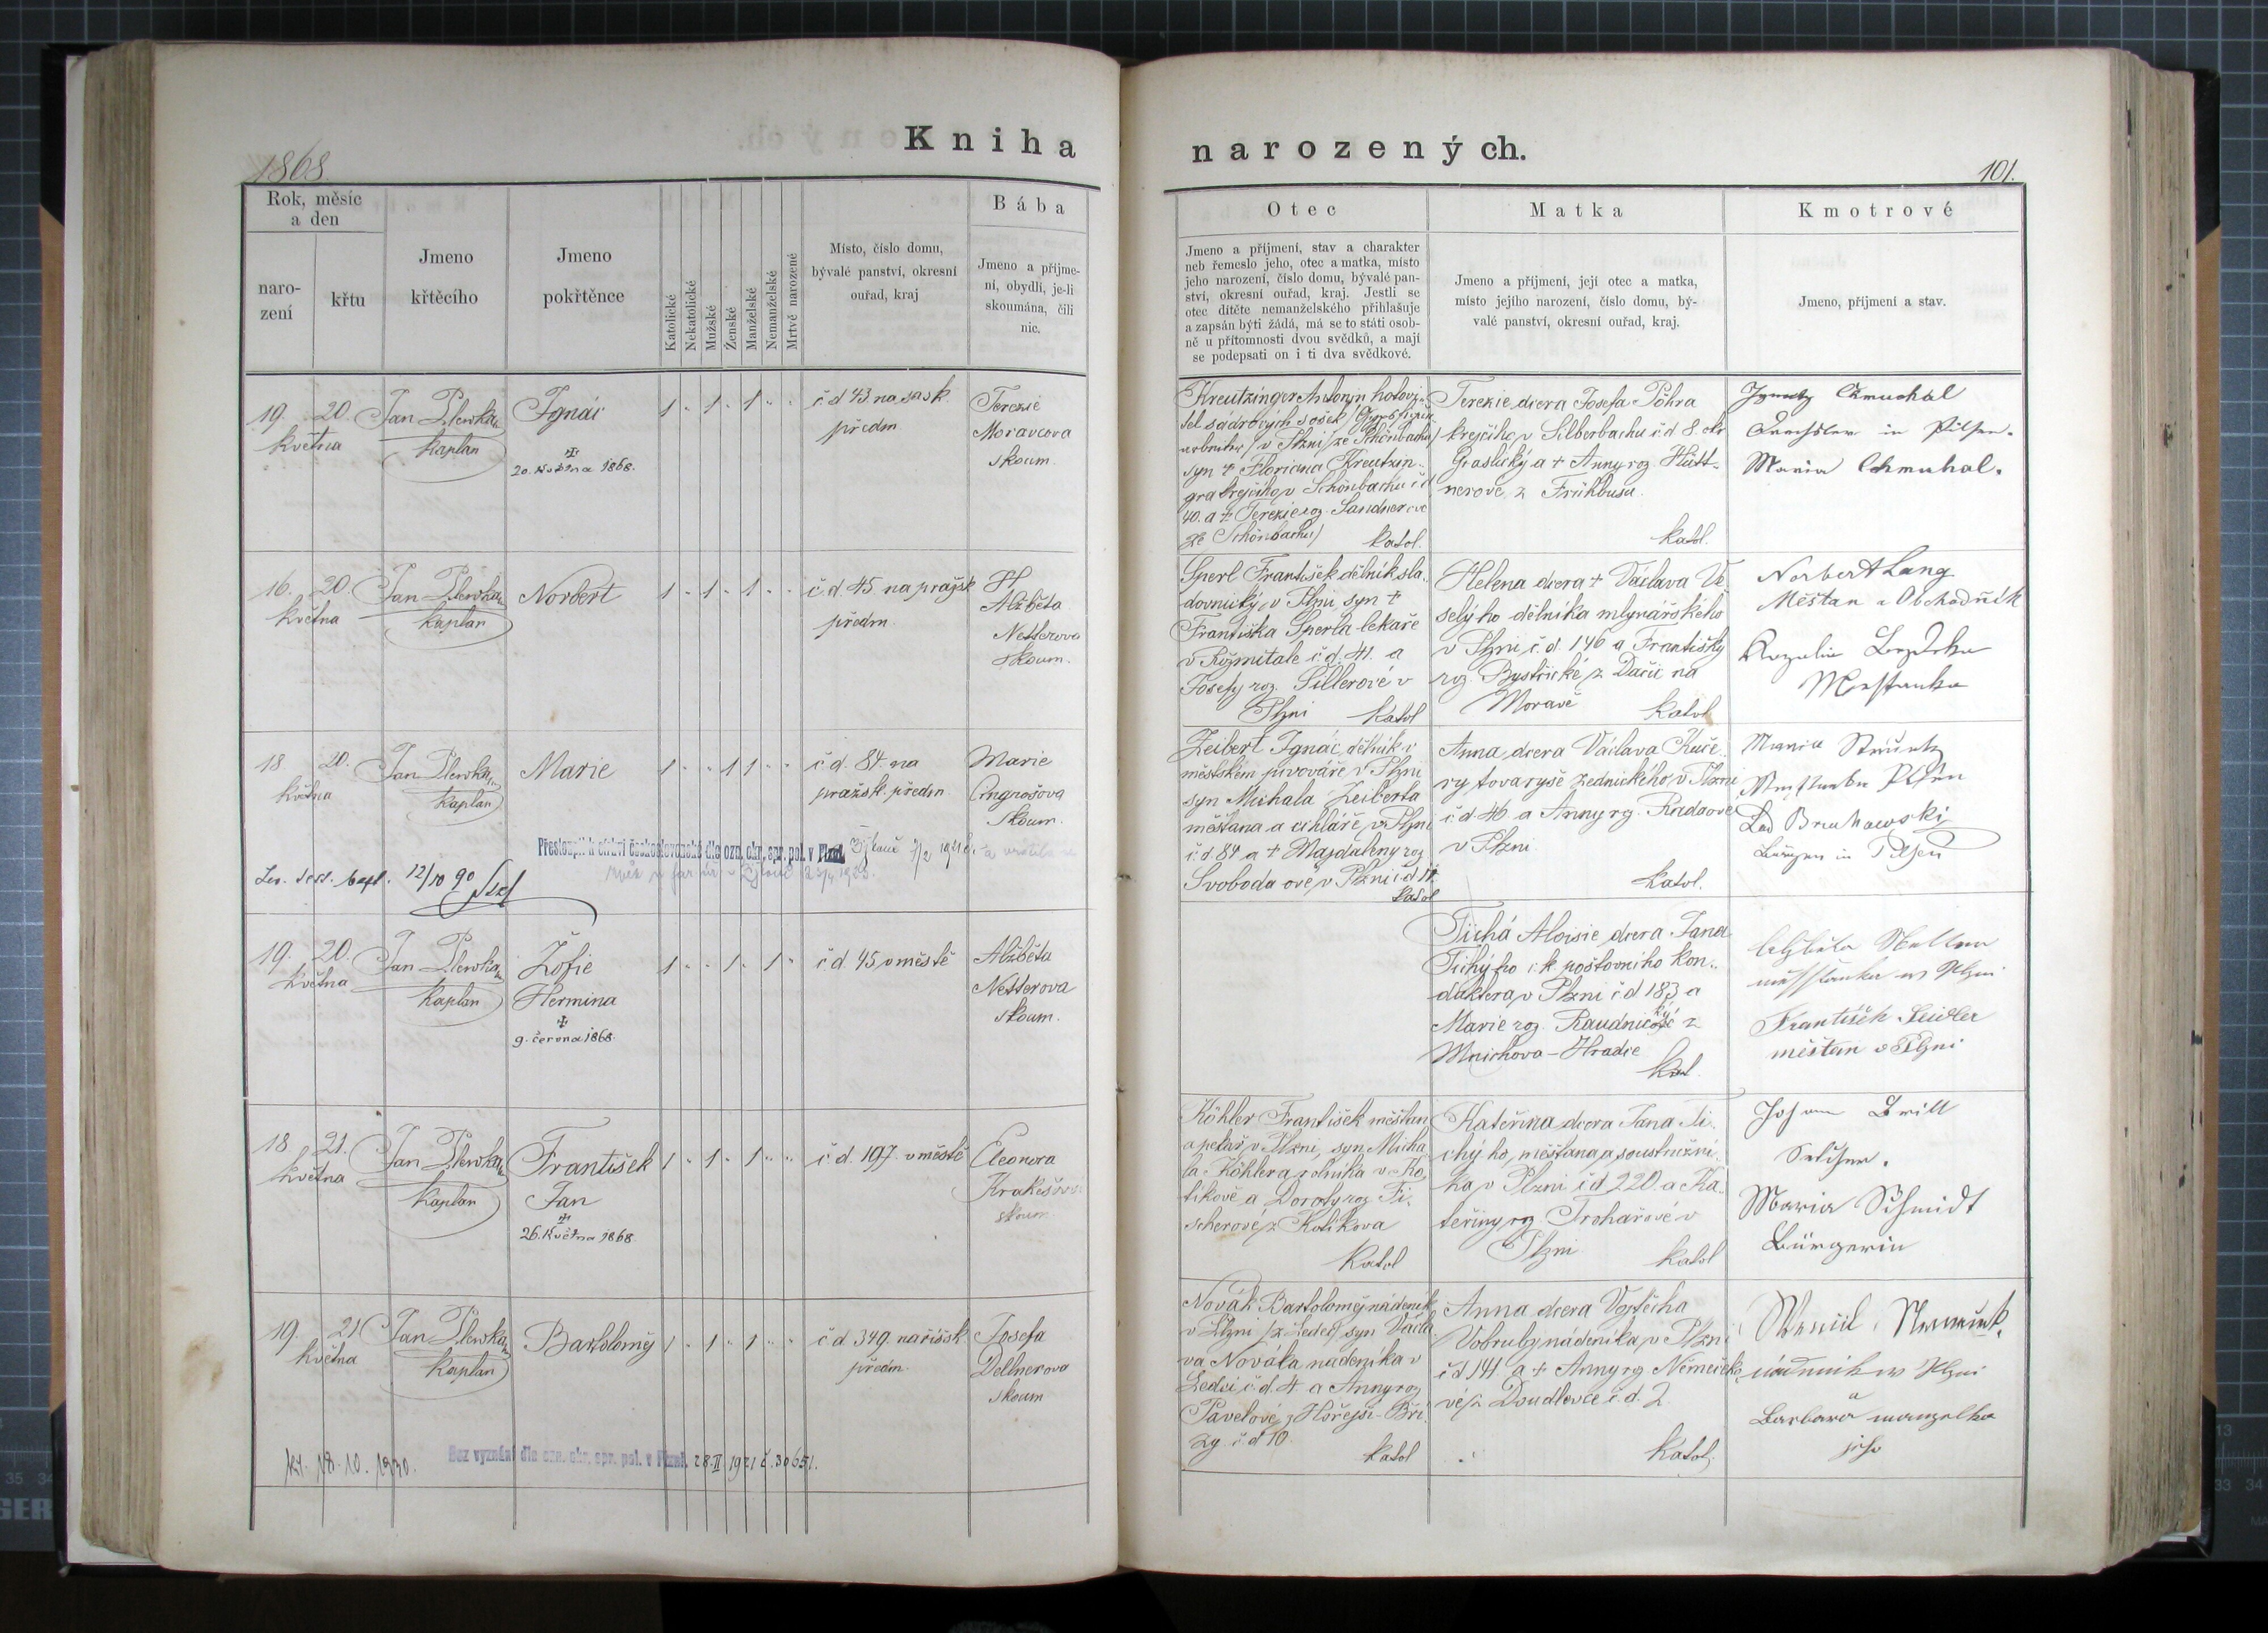 Kniha
narozených.
1868
101.
Rok, měsíc
a den
naro-
zení
křtu
Jmeno
křtěcího
Jmeno
pokřtěnce
Katolické
Nekatolické
Mužské
Ženské
Manželské
Nemanželské
Mrtvě narozené
Místo, číslo domu,
bývalé panství, okresní
ouřad, kraj
Bába
Jmeno a příjme-
ní, obydlí, je-li
skoumána, čili
nic.
Otec
Jmeno a příjmení, stav a charakter
neb řemeslo jeho, otec a matka, místo
jeho narození, číslo domu, bývalé pan-
ství, okresní ouřad, kraj. Jestli se
otec dítěte nemanželského přihlašuje
a zapsán býti žádá, má se to státi osob-
ně u přítomnosti dvou svědků, a mají
se podepsati on i ti dva svědkové.
Matka
Jmeno a příjmení, její otec a matka,
místo jejího narození, číslo domu, bý-
valé panství, okresní ouřad, kraj.
Kmotrové
Jmeno, příjmení a stav.
19. 20.
května
Jan Plewka
kaplan
Ignác
20. května 1868.
1 " 1 " 1 " "
č d 43 na sask
předm
Terezie
Moravcova
skoum.
Kreutzinger Antonín hotovi-
tel sádrových sošek
v Plzni /ze Schönbachu/
syn + Floriana Kreutzin-
gra krejčího v Schönbachu č d
40. a + Terezie roz. Sandnerove
ze Schönbachu/
katol.
Terezie dcera Josefa Pöhra
krejčího v Silberbachu č d 8. okr
Graslický a + Anny roz. Hütt-
nerové z Frühbusu.
katol.
Ignatz Chmuchal
in Pilsen.
Maria Chmuhal.
16. 20.
května
Jan Plewka
kaplan
Norbert
1 " 1 " 1 " "
č. d. 45. na pražsk
předm
Alžběta
Netterova
skoum.
Sperl František dělník sla-
dovnický v Plzni syn +
Františka Sperla lekaře
v Rožmitale č. d. 41. a
Josefy roz. Sillerové v
Plzni katol
Helena dcera + Václava Ve-
selýho dělníka mlynářského
v Plzni č. d. 146 a Františky
roz. Bystřické z Dačic na
Moravě katol
Norbert Lang
Měštan a Obchodník
18 20.
května
Jan Plewka
kaplan
Marie
1 " " 1 1 " "
č d. 84. na
pražsk. předm
Marie
Angrošova
skoum.
Přestoupil k církvi československé dle ozn. okr. spr. pol. v Plzni
12/10 90
Zeibert Ignác, dělník v
městském pivováře v Plzni
syn Michala Zeiberta
měštana a cihláře v Plzni
č. d 84 a + Magdaleny roz
Svobodaové v Plzni č. d
katol
Anna dcera Václava Kuče-
ry tovaryše zednického v Plzni
č d 46 a Anny rz. Radové
v Plzni
katol.
Bürger in Pilsen
19. 20.
května
Jan Plewka
kaplan
Žofie
Hermina
9. června 1868.
1 " " 1 " 1 "
č d 45 v městě
Alžběta
Netterova
skoum.
Tichá Aloisie dcera Jana
Tichýho c. k. poštovního kon-
duktera v Plzni č d 183 a
Marie roz. Raudnické z
Mnichova-Hradie
kat.
František Zeidler
měštan v Plzni
18 21.
května
Jan Plewka
kaplan
František
Jan
26. května 1868
1 " 1 " 1 " "
č. d. 197. v městě
Eleonora
skoum
Köhler František měštan
a pekař v Plzni, syn Micha-
la Köhlera rolníka v Ko-
tikově a Doroty roz Fi-
scherové z Kotikova
Katol
Kateřina dcera Jana Ti-
chýho, měštana a soustružní-
ka v Plzni č d 220. a Ka-
teřiny rz. Trohařové v
Plzni katol
Johann Brill
Maria Schmidt
Bürgerin
19. 21
května
Jan Plewka
kaplan
Bartoloměj
1 " 1 " 1 " "
č d 349 na říšsk
předm.
Josefa
Dellnerova
skoum
18. 10. 1930.
Bez vyznání dle ozn. okr. spr. pol. v Plzni, 28. II 1921 č. 30651.
Novák Bartoloměj nádeník
v Plzni /z Ledec/ syn Václa-
va Nováka nádeníka v
Ledci č. d. 4 a Anny roz
Pavelové z Hořejší-Bří-
zy č. d 10.
katol
Anna dcera Vojtěcha
Vobruby nádeníka v Plzni
č d 141 a + Anny rz. Němečko-
vé z Doudlevce č. d. 2
katol.
nádenik w Plzni
a
Barbara manzelka
jeho